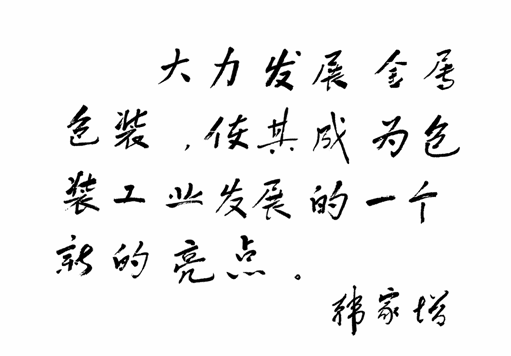 大力发展金属
包装,使其成为包
装工业发展的一个
新的亮点。
韩家增